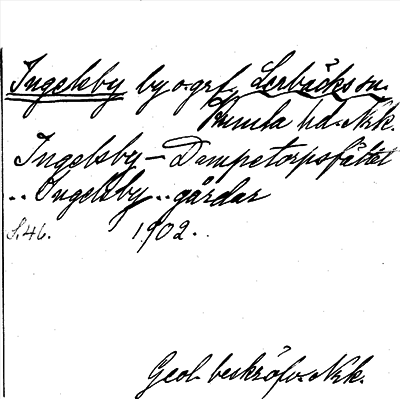 Ingelsby by o. grf. Lerbäcks sn.
Kumla hd. Nrk.
Ingelsby – Dampetorpsfältet
.. Ingelsby .. gårdar
S. 46. 1902.
Geol. beskröfv. Nrk.